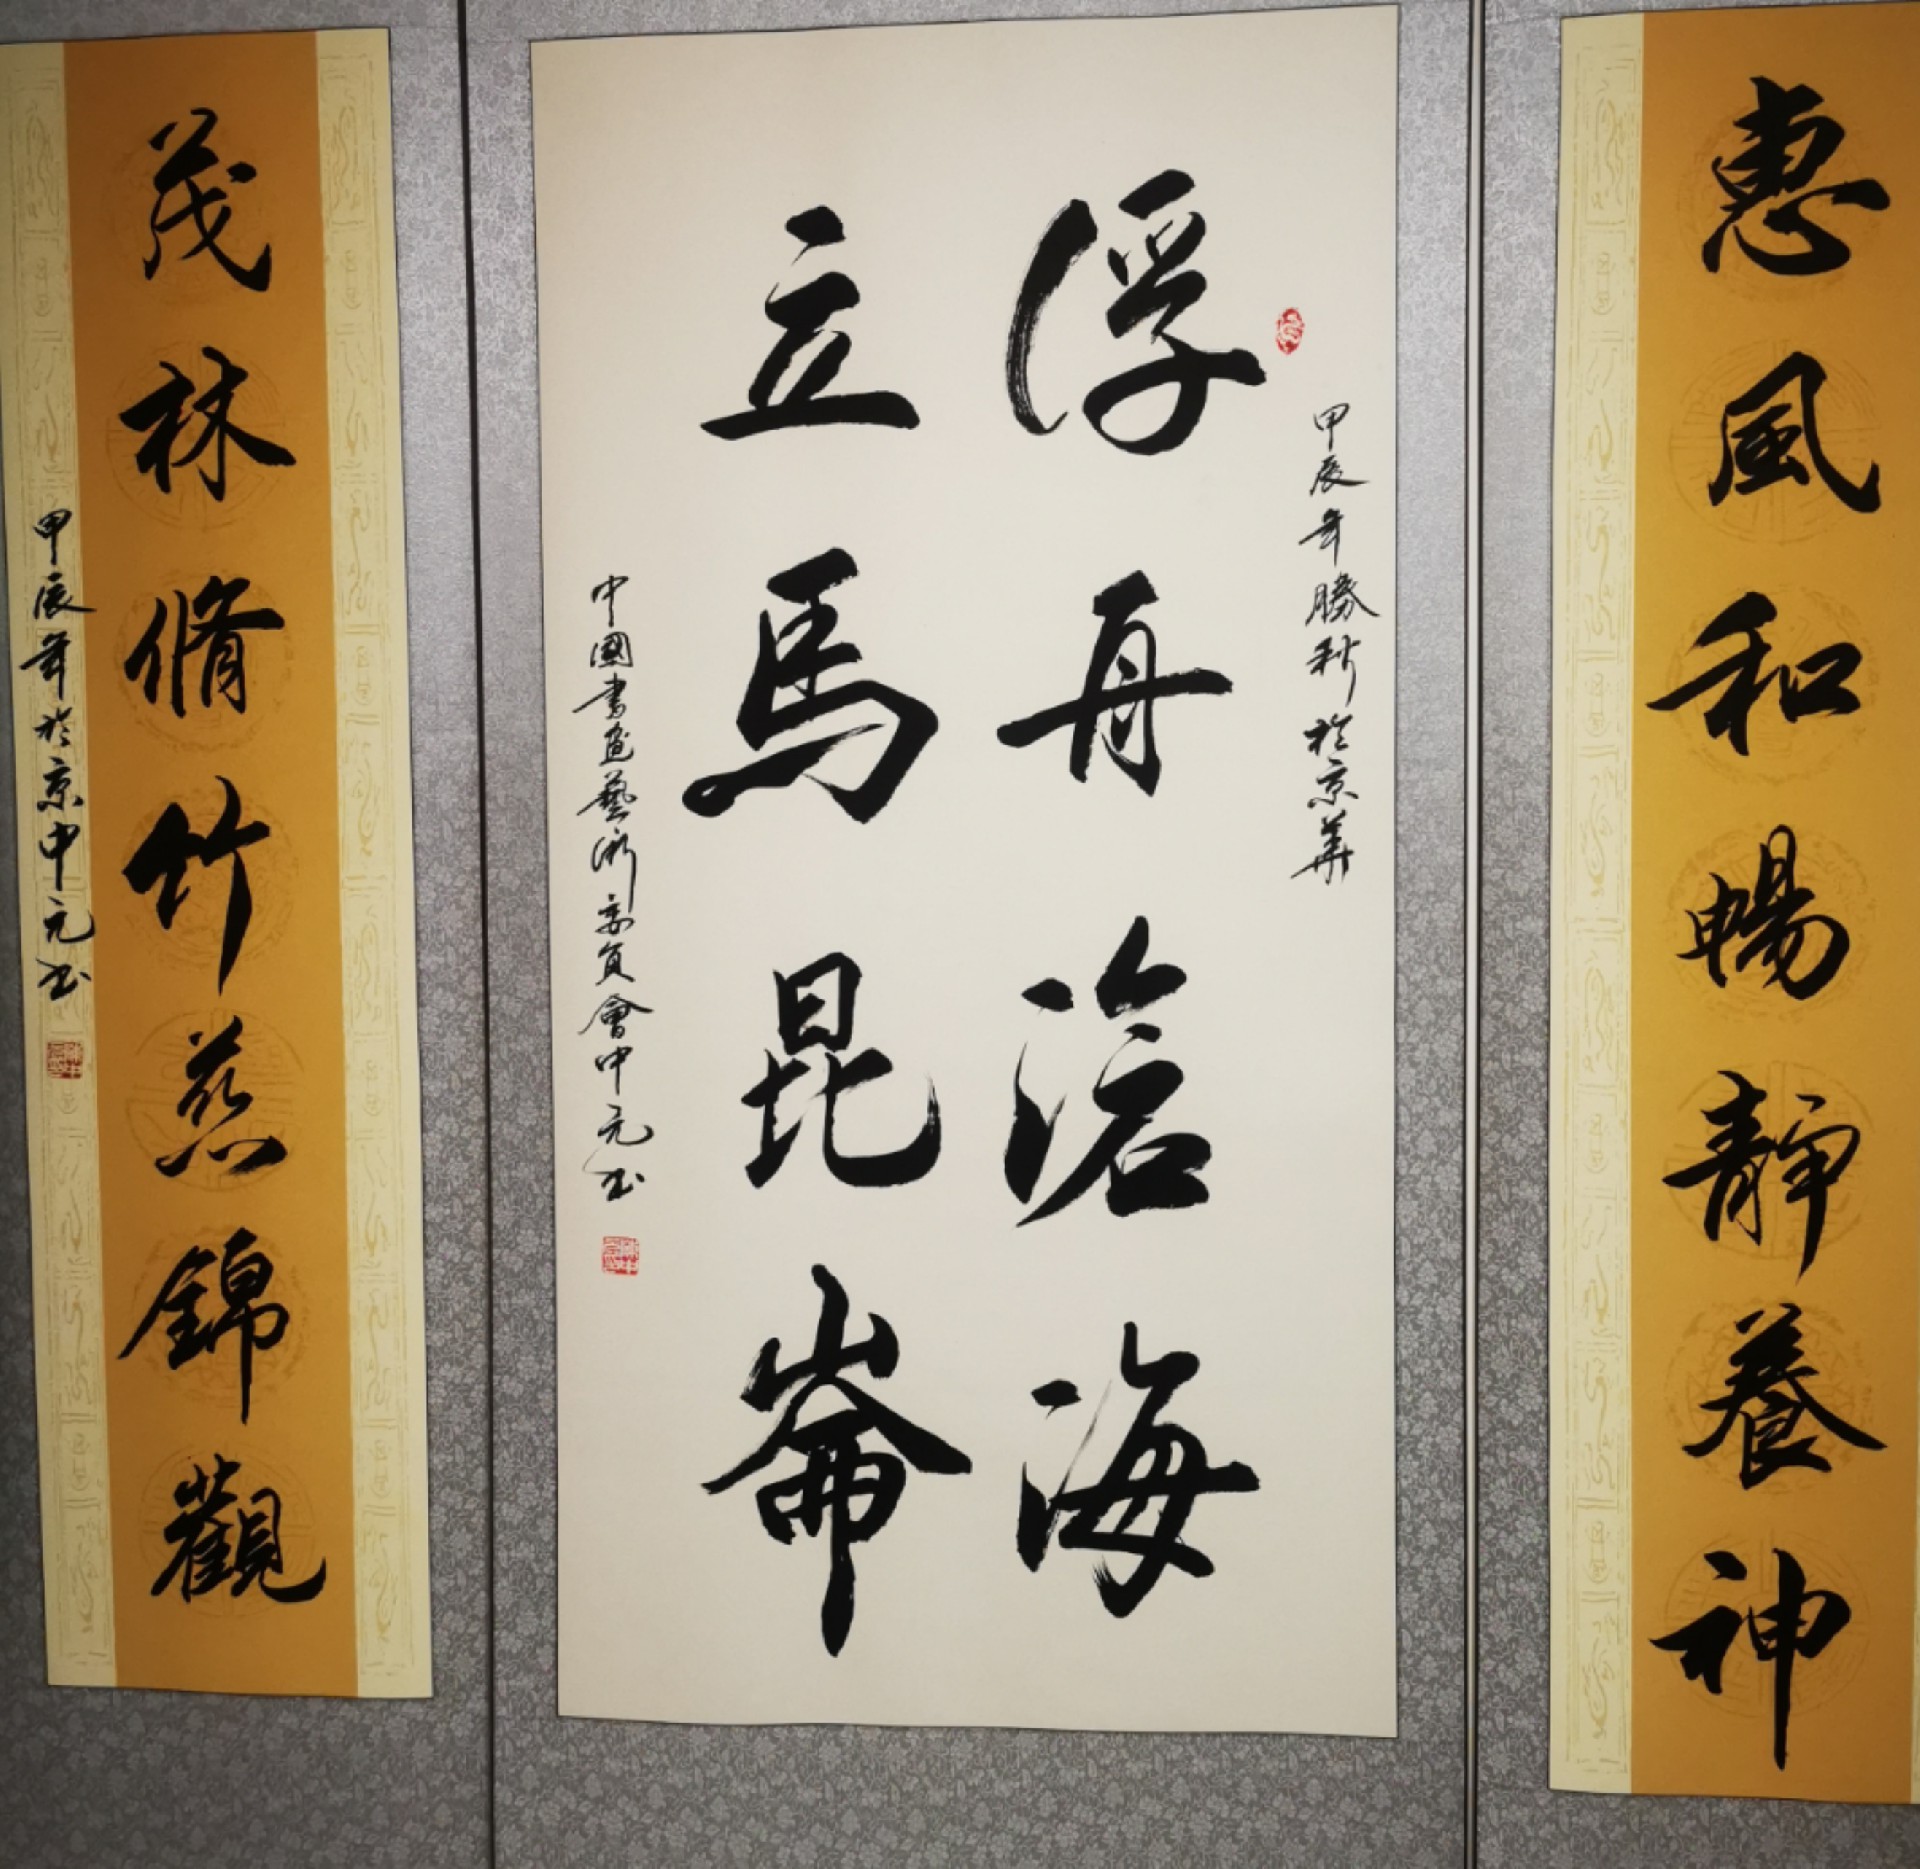 惠風和暢靜養神
甲辰年勝秋於京華
浮舟滄海
立馬昆崙
中國書画藝術委員會中元书
茂林脩竹慈錦觀
甲辰年於京中元书